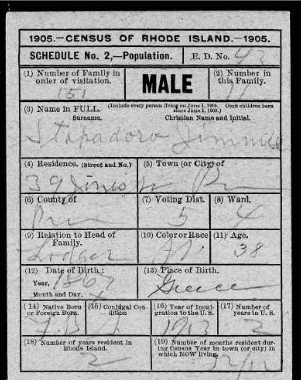 1905.—CENSUS OF RHODE ISLAND.—1905.
SCHEDULE No. 2,—Population. E. D. No. 43
(1) Number of Family in order of visitation. 151
MALE
(2) Number in this Family:
(3) Name in FULL. (Include every person living on June 1, 1905. Omit children born since June 1, 1905.)
Surname. Christian Name and Initial.
Stapadoro Jimmie
(4) Residence. (Street and No.) (5) Town (or City) of
39
(6) County of (7) Voting Dist. (8) Ward.
5 4
(9) Relation to Head of Family. (10) Color or Race (11) Age.
Lodger 38
(12) Date of Birth: (13) Place of Birth.
Year, 1867 Greece
Month and Day.
(14) Native Born or Foreign Born. (15) Conjugal Condition (16) Year of Immigration to the U. S. (17) Number of years in U. S.
F. B. 2
(18) Number of years resident in Rhode Island. (19) Number of months resident during Census Year in town (or city) in which NOW living.
2